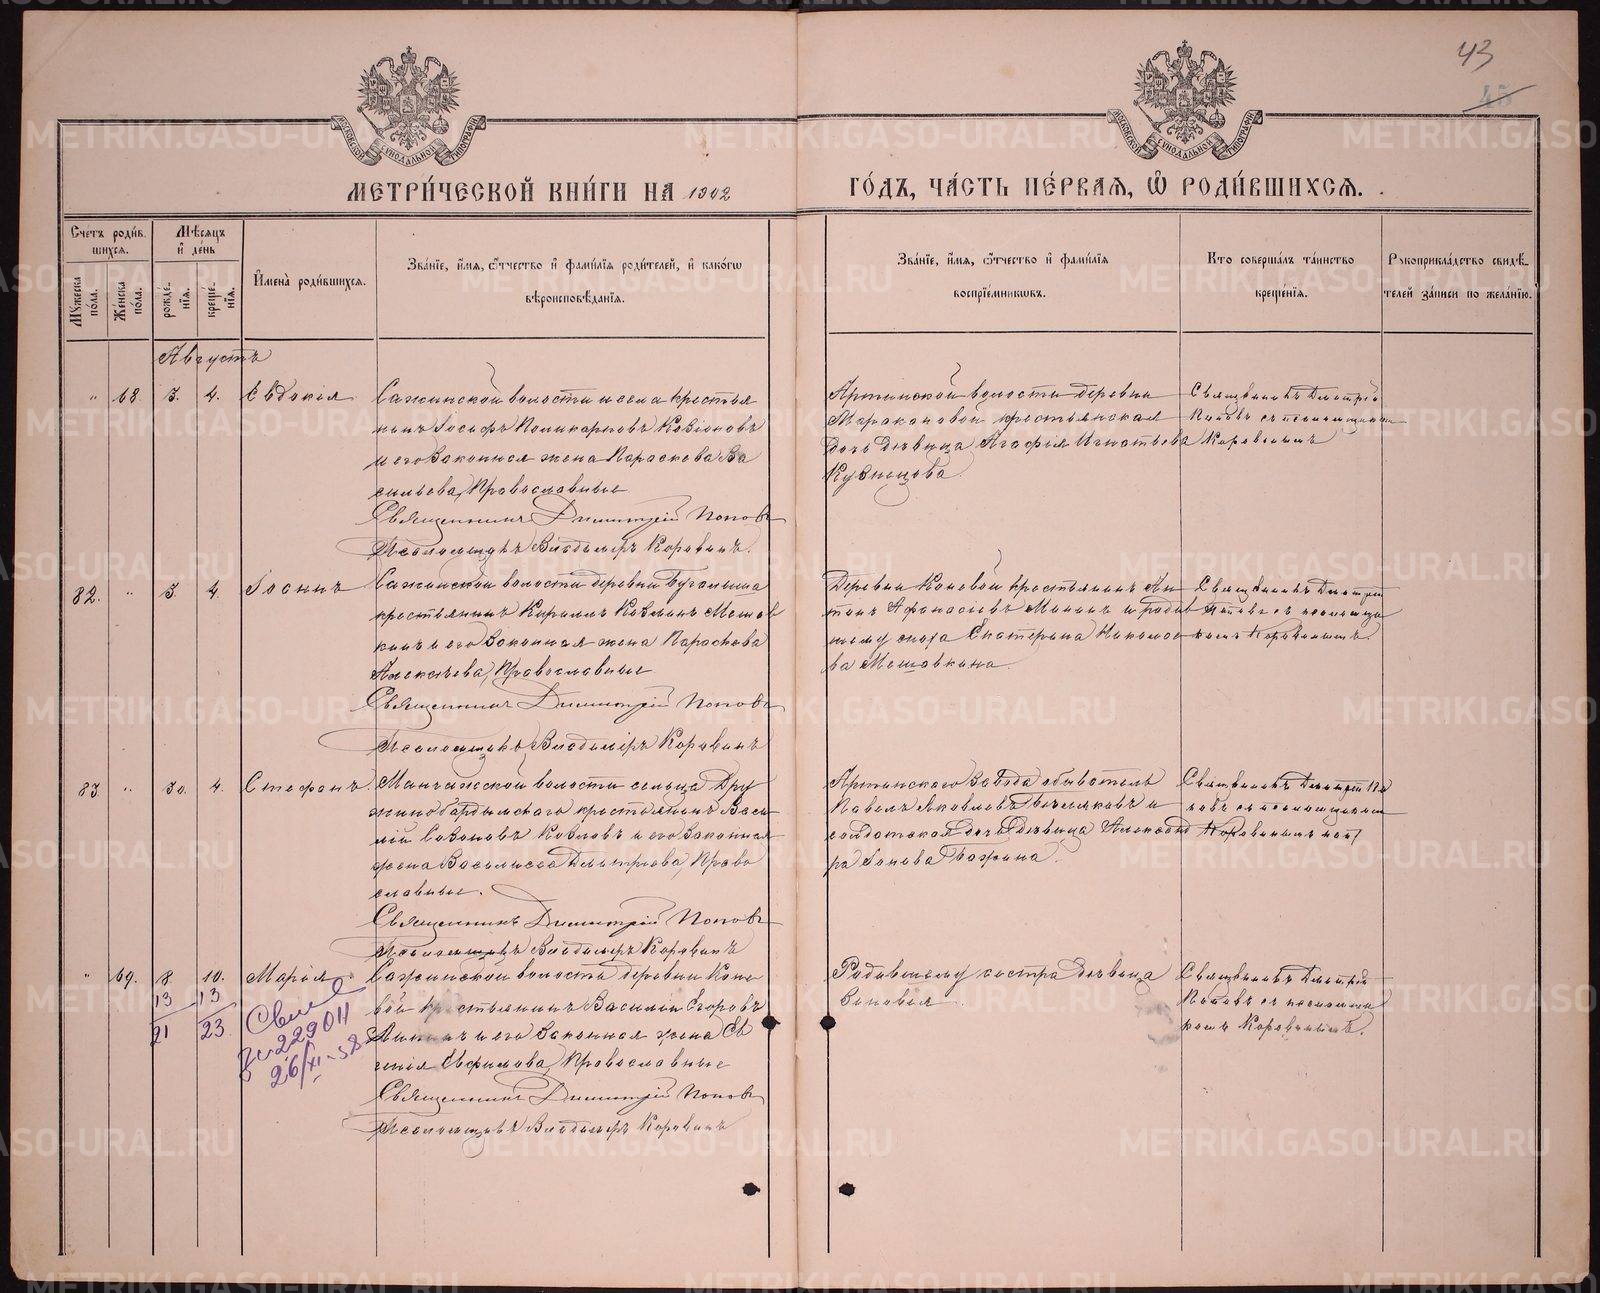 43
45
МОСКОВСКОЙ СѴНОДАЛЬНОЙ ТИПОГРАФІИ
МОСКОВСКОЙ СѴНОДАЛЬНОЙ ТИПОГРАФІИ
МЕТРИ́ЧЕСКОЙ КНИ́ГИ НА 1902
ГО́ДЪ, ЧА́СТЬ ПЕ́РВАЯ, Ѡ҆ РОДИ́ВШИХСЯ.
Счетъ роди́вшихся.
Мꙋ́жеска по́ла.
Же́нска по́ла.
Мѣ́сяцъ и҆ де́нь
рожде́нїя.
креще́нїя.
И҆мена̀ роди́вшихся.
Зва́нїе, и҆́мя, ѻ҆́тчество и҆ фами́лїя роди́телей, и҆ како́гѡ вѣроисповѣ́данїя.
Зва́нїе, и҆́мя, ѻ҆́тчество и҆ фами́лїя воспрїе́мникѡвъ.
Кто̀ соверша́лъ та́инство креще́нїя.
Рꙋкоприкла́дство свидѣ́телей за́писи по жела́нїю.
Августъ
" 68. 3. 4. Евдокія
Сажинской волости и села крестья
нинъ Іосифъ Поликарповъ
и его законная жена Параскева Ва
сильева, Православные
Священникъ Димитрій Поповъ
Псаломщикъ Владиміръ Коровинъ.
Артинской волости деревни
крестьянская
дочь девица Агафья Игнатьева
Кузнецова.
Священникъ Дмитрій
Поповъ съ псаломщикомъ
Коровинымъ
82. " 3. 4.
Сажинской волости деревни Бугалыша
крестьянинъ Кириллъ
кинъ и его законная жена Параскева
Алексѣева, Православные
Священникъ Димитрій Поповъ
Псаломщикъ Владиміръ Коровинъ
Деревни Коневой крестьянинъ Ан
тонъ Афонасіевъ и родив
шему сноха Екатерина Николае
ва Мешавкина.
Священникъ Дмитрій
Поповъ съ псаломщи
комъ Коровинымъ.
83. " 30. 4. Стефанъ.
Манчажской волости сельца Дру
жино-Бардымскаго крестьянинъ Васи
лій Созоновъ Козловъ и его законная
жена Василисса Дмитріева, Право
славные.
Священникъ Димитрій Поповъ
Псаломщикъ Владиміръ Коровинъ
Артинскаго завода обыватель
Павелъ Яковлевъ и
солдатская дочь девица Александ
ра
Священникъ Дмитрій По
повъ съ псаломщикомъ
Коровинымъ
" 69. 8. 10. Марія
Сажинской волости деревни Коне
вой крестьянинъ Василій Егоровъ
и его законная жена Ев
генія Евфимова, Православные
Священникъ Димитрій Поповъ
Псаломщикъ Владиміръ Коровинъ
Родившему сестра девица
Зиновія.
Священникъ Дмитрій
Поповъ съ псаломщи
комъ Коровинымъ.
13 13
21 23
22904
26/XI-38
METRIKI.GASO-URAL.RU